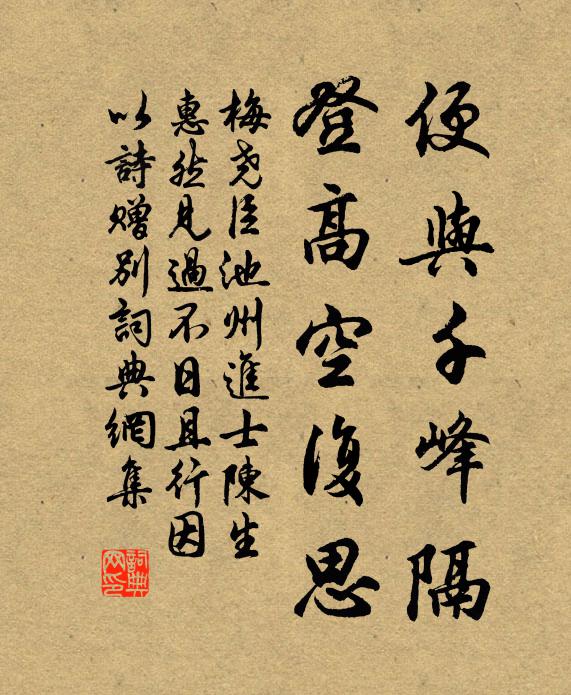 便與千峰隔
登高空復思
梅堯臣池州進士陳生
惠然見過不日且行因
以詩贈別詞典網集
詞典
网印